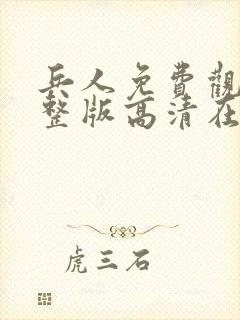 兵人免費觀
整版高清在
虎三石